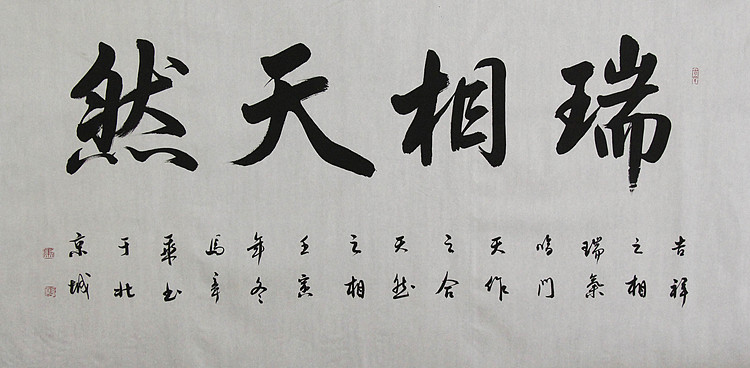 瑞相天然
吉祥
之相
瑞氣
临门
天作
之合
天然
之相
壬寅
年冬
馬章
乘书
于北
京城